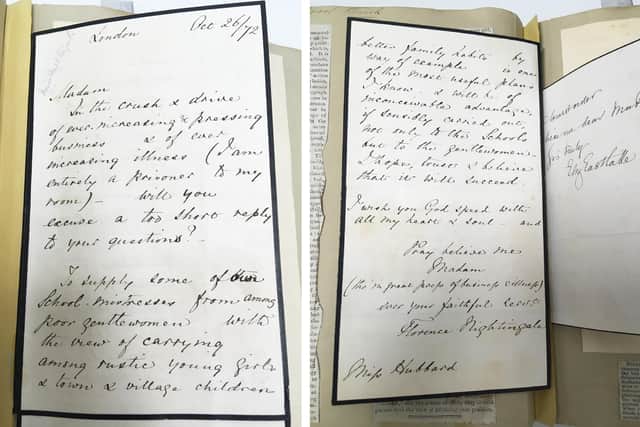 London Oct 26/72
Madam
In the crush & drive
of ever increasing & pressing
business & of ever
increasing illness (I am
entirely a prisoner to my
room) - will you
excuse a too short reply
to your questions? -
To supply some of
School-mistresses from among
poor gentlewomen with
the view of carrying
among rustic young girls
& town & village children
better family habits by
way of example is one
of the most useful plans
I know. & will be of
inconceivable advantage,
if sensibly carried out,
not only to the Schools
but to the gentlewomen -
I hope, trust & believe
that it will succeed.
I wish you God speed with
all my heart & soul - and
Pray believe me
Madam
(tho' in great press of business & illness)
ever your faithful servt
Florence Nightingale
Miss Hubbard
me dear
Eliz Eastlake